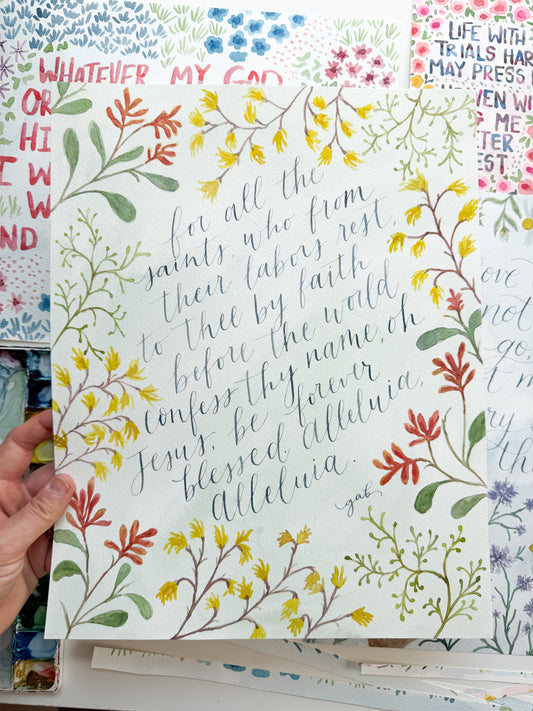 WHATEVER MY GOD
OR
HI
I W
W
ND
LIFE WITH
TRIALS HAR
MAY PRESS
EN WI
ME
TER
EST
for all the
saints, who from
their labors rest,
to thee by faith
before the world
confess thy name, oh
Jesus, be forever
blessed. Alleluia,
Alleluia.
gab
ove
not
go,
m
ry
th